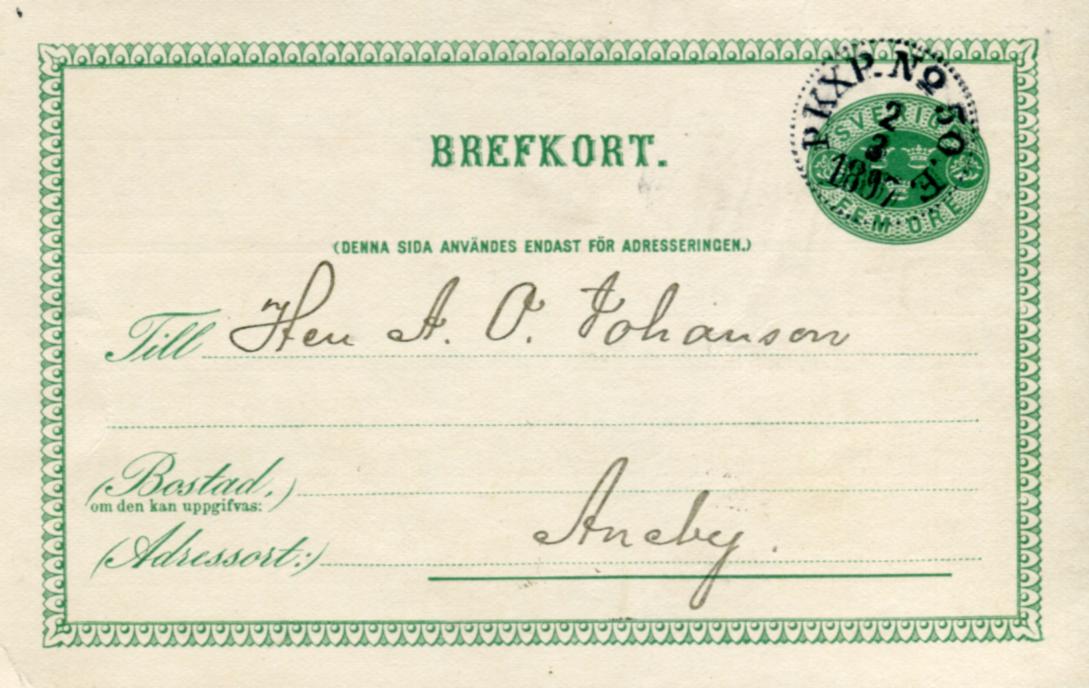 BREFKORT.
PKXP. No 50. F.
2
3
1897
SVERIGE
FEM ÖRE
(DENNA SIDA ANVÄNDES ENDAST FÖR ADRESSERINGEN.)
Till Herr A. O. Johanson
(Bostad,)
om den kan uppgifvas:
(Adressort:) Aneby.